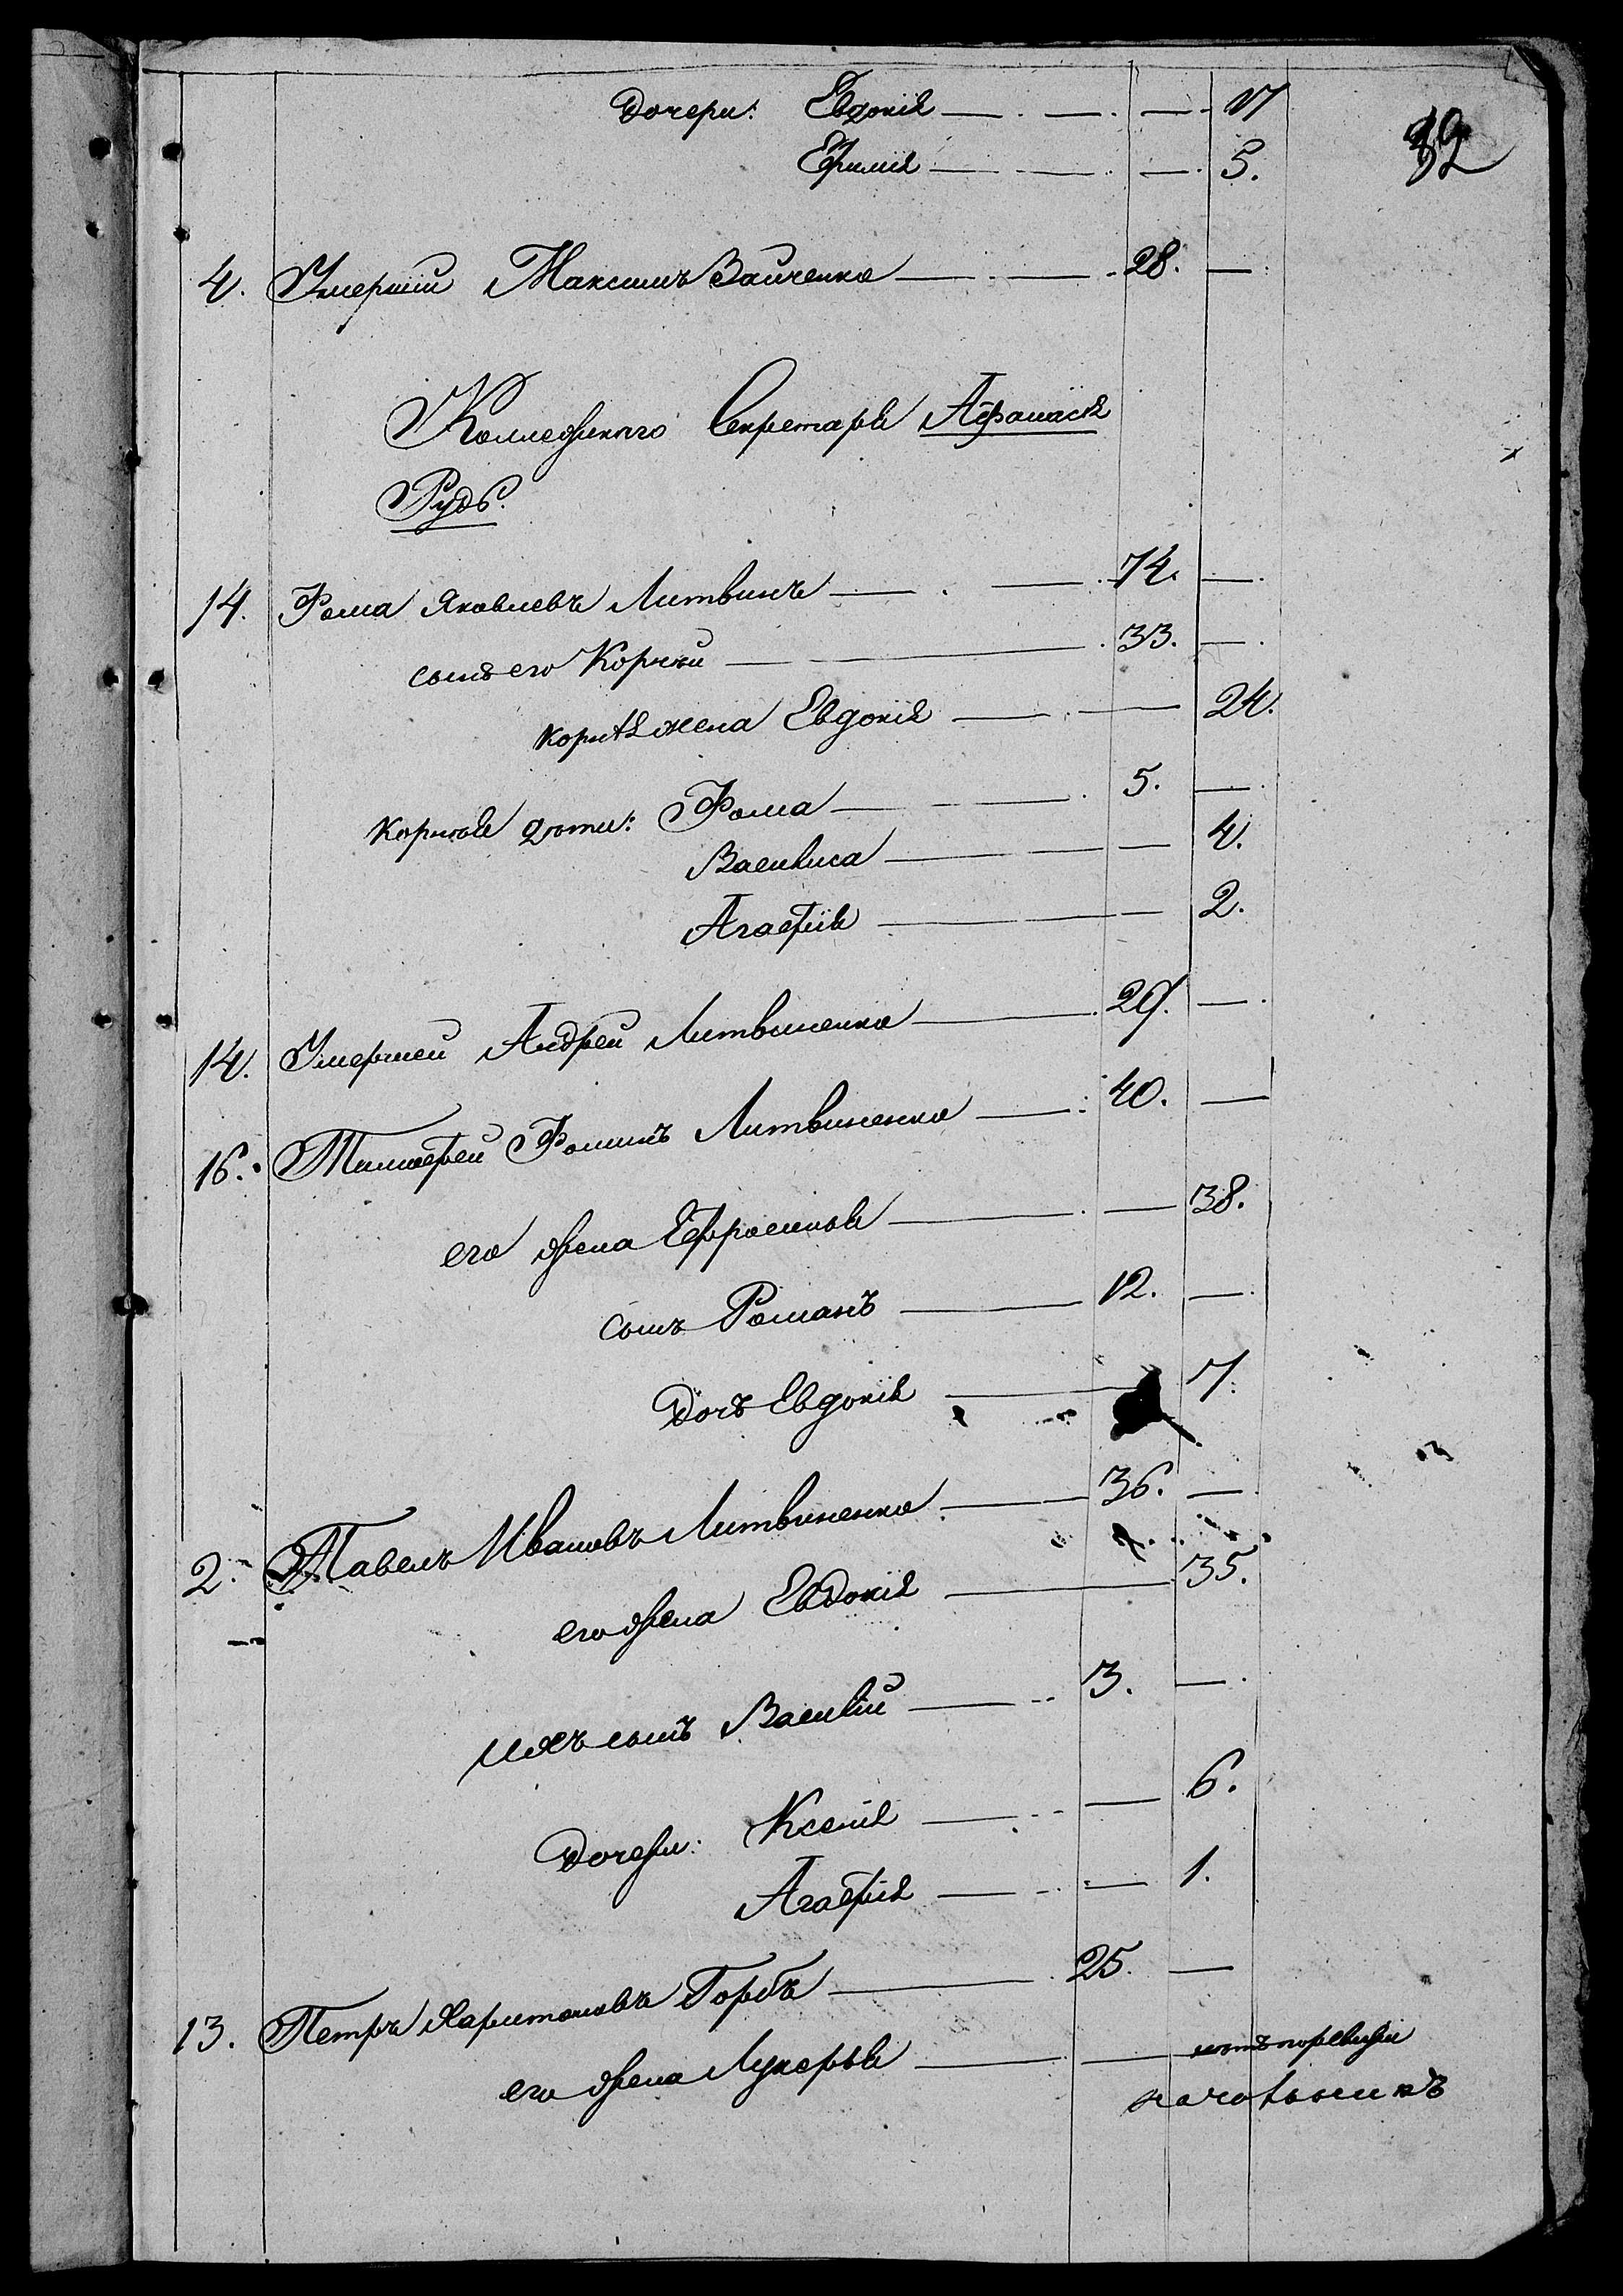 Дочери: Евдокія — — — 17
32
Ефимія — — — 5.
4. Умершій Максимъ Зайченко — — 28. —
Коллежскаго Секретаря Афанасія
Рудь.
14. Фома Яковлевъ Литвинъ — — 74. —
сынъ его Корнѣй — — 33. —
Корнѣя жена Евдокія — — 24.
Корнѣя дѣти: Фома — — 5. —
Василиса — — 4.
Агафія — — 2.
14. Умершей Андрей Литвиненко — 29. —
16. Тимофей Фоминъ Литвиненко — 40. —
его жена Ефросинья — — 38.
сынъ Романъ — 12. —
Дочь Евдокія — 7.
2. Павелъ Ивановъ Литвиненко — 36. —
его жена Евдокія — 35.
ихъ сынъ Василій — 3. —
Дочери: Ксенія — — 6.
Агафія — — 1.
13. Петръ Харитоновъ Горбъ — 25. —
его жена Лукерья — —